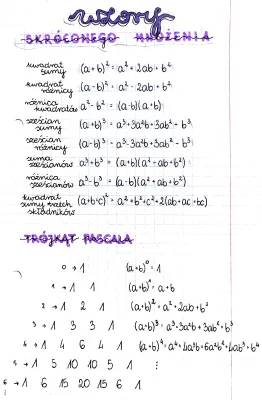 wzory
SKRÓCONEGO MNOŻENIA
kwadrat sumy (a+b)² = a² + 2ab + b²
kwadrat różnicy (a-b)² = a² - 2ab + b²
różnica kwadratów a² - b² = (a-b)(a+b)
sześcian sumy (a+b)³ = a³+3a²b+3ab² + b³
sześcian różnicy (a-b)³ = a³-3a²b+3ab² - b³
suma sześcianów a³+b³ = (a+b)(a² - ab + b²)
różnica sześcianów a³ - b³ = (a-b)(a² + ab + b²)
kwadrat sumy trzech składników (a+b+c)² = a²+b²+c² + 2(ab + ac + bc)
TRÓJKĄT PASCALA
0 → 1 (a+b)⁰ = 1
1 → 1 1 (a+b)¹ = a+b
2 → 1 2 1 (a+b)² = a² + 2ab + b²
3 → 1 3 3 1 (a+b)³ = a³+3a²b+3ab²+b³
4 → 1 4 6 4 1 (a+b)⁴ = a⁴+4a³b+6a²b²+4ab³+b⁴
5 → 1 5 10 10 5 1 ⋮
6 → 1 6 15 20 15 6 1